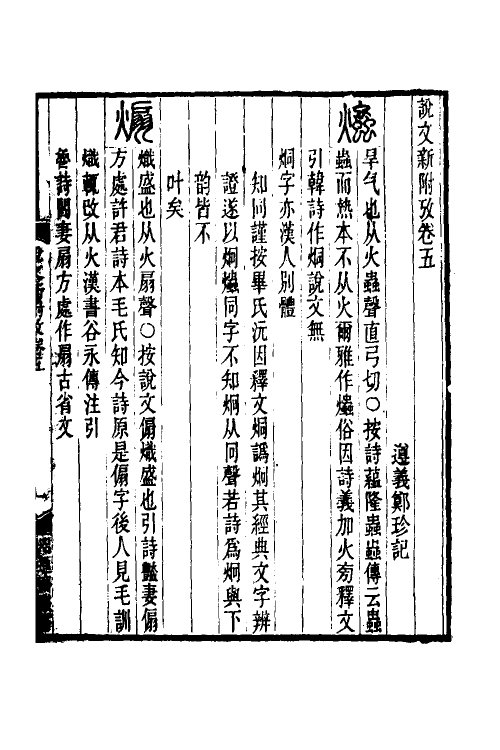 說文新附攷卷五
遵義鄭珍記
旱气也从火蟲聲直弓切○按詩蘊隆蟲蟲傳云蟲
蟲而熱本不从火爾雅作爞俗因詩義加火旁釋文
引韓詩作烔說文無
烔字亦漢人別體
知同謹按畢氏沅因釋文烔譌炯其經典文字辨
證遂以炯爞同字不知炯从冋聲若詩爲炯與下
韵皆不
叶矣
熾盛也从火扇聲○按說文傓熾盛也引詩豔妻傓
方處許君詩本毛氏知今詩原是傓字後人見毛訓
熾輒改从火漢書谷永傳注引
魯詩閻妻扇方處作扇古省文